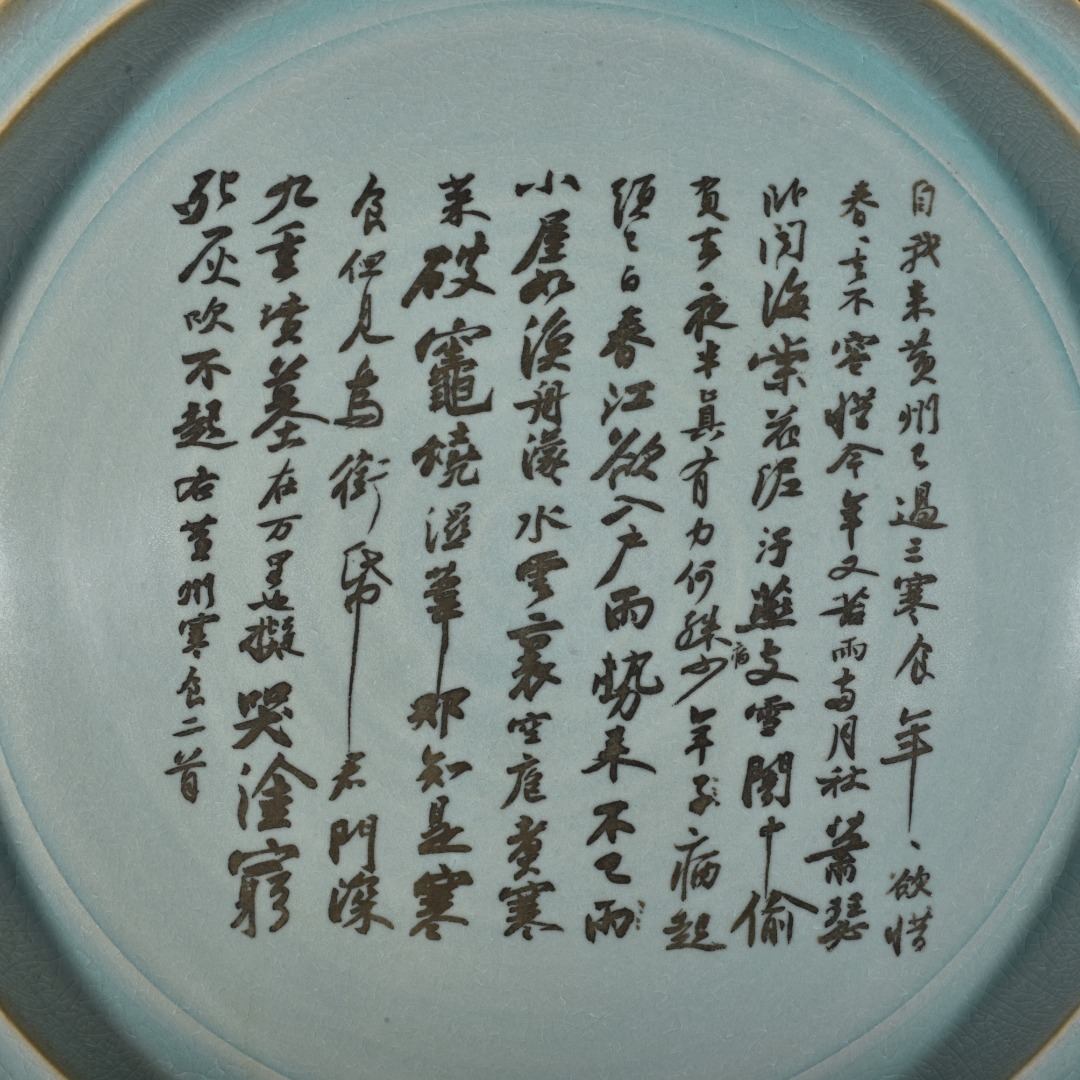 自我來黃州已過三寒食年、欲惜
春、去不容惜今年又苦雨兩月秋蕭瑟
臥聞海棠花泥汙燕支雪闇中偷
負去夜半真有力何殊病少年子病起
頭已白春江欲入戶雨勢來不已雨
小屋如漁舟濛水雲裏空庖煮寒
菜破竈燒濕葦那知是寒
食但見烏銜帋君門深
九重墳墓在万里也擬哭塗窮
死灰吹不起右黃州寒食二首